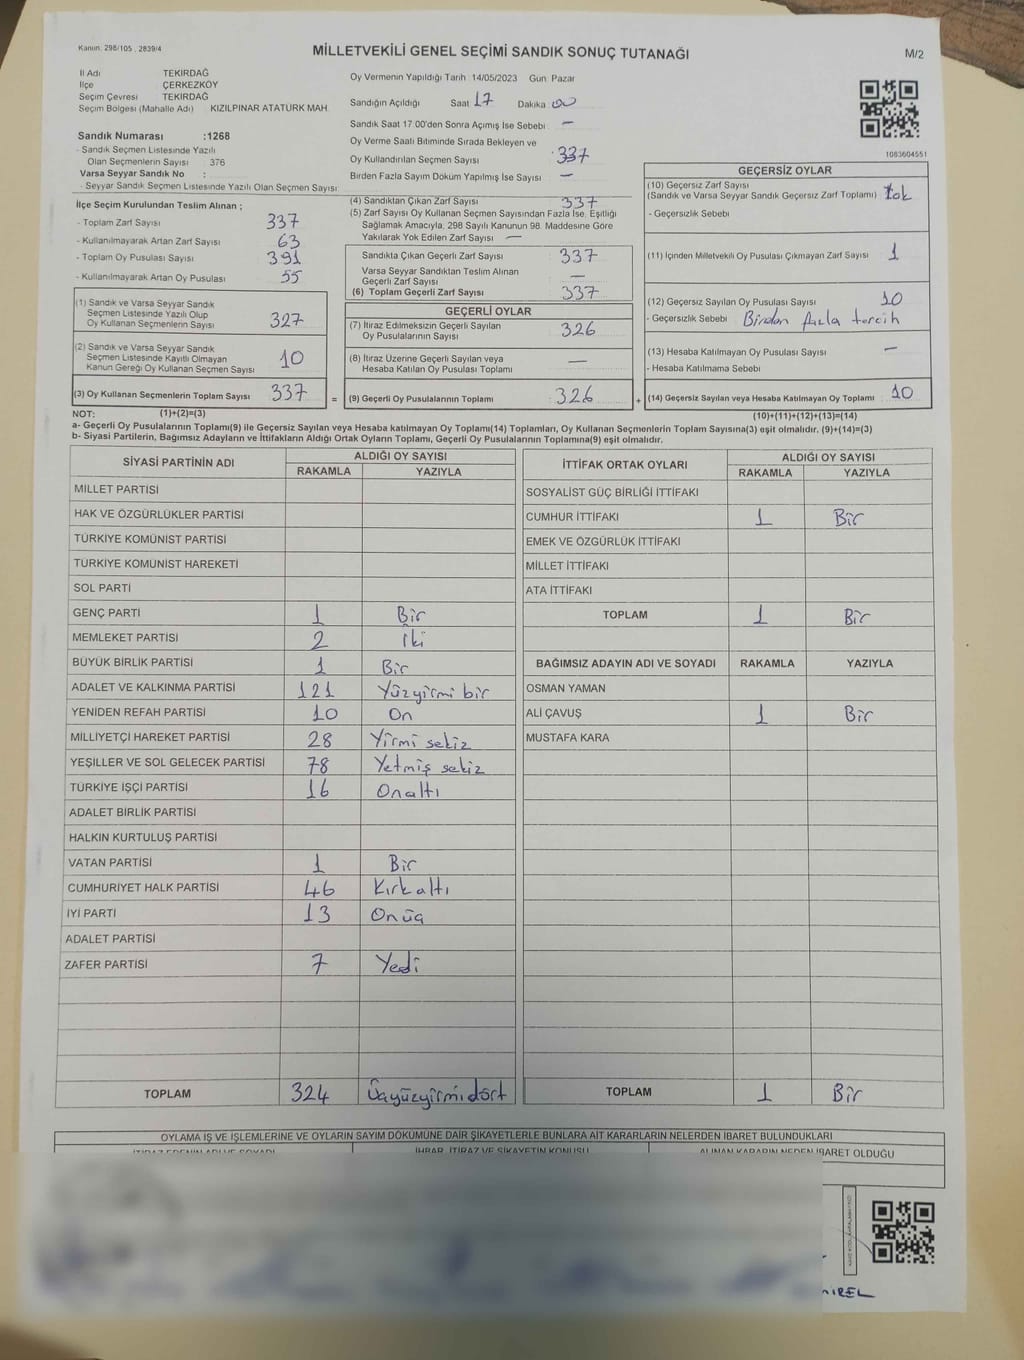 Kanun: 298/105 , 2839/4
MİLLETVEKİLİ GENEL SEÇİMİ SANDIK SONUÇ TUTANAĞI
M/2
İl Adı TEKİRDAĞ
İlçe ÇERKEZKÖY
Seçim Çevresi TEKİRDAĞ
Seçim Bölgesi (Mahalle Adı) KIZILPINAR ATATÜRK MAH.
Sandık Numarası :1268
- Sandık Seçmen Listesinde Yazılı
Olan Seçmenlerin Sayısı : 376
Varsa Seyyar Sandık No :
- Seyyar Sandık Seçmen Listesinde Yazılı Olan Seçmen Sayısı:
Oy Vermenin Yapıldığı Tarih 14/05/2023 Gün: Pazar
Sandığın Açıldığı Saat 17 Dakika 00
Sandık Saat 17.00'den Sonra Açımış İse Sebebi : —
Oy Verme Saati Bitiminde Sırada Bekleyen ve
Oy Kullandırılan Seçmen Sayısı : 337
Birden Fazla Sayım Döküm Yapılmış İse Sayısı —
1083604551
İlçe Seçim Kurulundan Teslim Alınan ;
- Toplam Zarf Sayısı 337
- Kullanılmayarak Artan Zarf Sayısı 63
- Toplam Oy Pusulası Sayısı 391
- Kullanılmayarak Artan Oy Pusulası 55
(1) Sandık ve Varsa Seyyar Sandık
Seçmen Listesinde Yazılı Olup
Oy Kullanan Seçmenlerin Sayısı 327
(2) Sandık ve Varsa Seyyar Sandık
Seçmen Listesinde Kayıtlı Olmayan
Kanun Gereği Oy Kullanan Seçmen Sayısı 10
(3) Oy Kullanan Seçmenlerin Toplam Sayısı 337 =
(4) Sandıktan Çıkan Zarf Sayısı 337
(5) Zarf Sayısı Oy Kullanan Seçmen Sayısından Fazla İse, Eşitliği
Sağlamak Amacıyla, 298 Sayılı Kanunun 98. Maddesine Göre
Yakılarak Yok Edilen Zarf Sayısı —
Sandıkta Çıkan Geçerli Zarf Sayısı 337
Varsa Seyyar Sandıktan Teslim Alınan
Geçerli Zarf Sayısı —
(6) Toplam Geçerli Zarf Sayısı 337
GEÇERLİ OYLAR
(7) İtiraz Edilmeksizin Geçerli Sayılan
Oy Pusulalarının Sayısı 326
(8) İtiraz Üzerine Geçerli Sayılan veya
Hesaba Katılan Oy Pusulası Toplamı —
(9) Geçerli Oy Pusulalarının Toplamı 326 +
GEÇERSİZ OYLAR
(10) Geçersiz Zarf Sayısı
(Sandık ve Varsa Seyyar Sandık Geçersiz Zarf Toplamı) Yok
- Geçersizlik Sebebi
(11) İçinden Milletvekili Oy Pusulası Çıkmayan Zarf Sayısı 1
(12) Geçersiz Sayılan Oy Pusulası Sayısı 10
- Geçersizlik Sebebi Birden fazla tercih
(13) Hesaba Katılmayan Oy Pusulası Sayısı —
- Hesaba Katılmama Sebebi
(14) Geçersiz Sayılan veya Hesaba Katılmayan Oy Toplamı 10
NOT: (1)+(2)=(3)
(10)+(11)+(12)+(13)=(14)
a- Geçerli Oy Pusulalarının Toplamı(9) ile Geçersiz Sayılan veya Hesaba katılmayan Oy Toplamı(14) Toplamları, Oy Kullanan Seçmenlerin Toplam Sayısına(3) eşit olmalıdır. (9)+(14)=(3)
b- Siyasi Partilerin, Bağımsız Adayların ve İttifakların Aldığı Ortak Oyların Toplamı, Geçerli Oy Pusulalarının Toplamına(9) eşit olmalıdır.
SİYASİ PARTİNİN ADI ALDIĞI OY SAYISI
RAKAMLA YAZIYLA
MİLLET PARTİSİ
HAK VE ÖZGÜRLÜKLER PARTİSİ
TÜRKİYE KOMÜNİST PARTİSİ
TÜRKİYE KOMÜNİST HAREKETİ
SOL PARTİ
GENÇ PARTİ 1 Bir
MEMLEKET PARTİSİ 2 İki
BÜYÜK BİRLİK PARTİSİ 1 Bir
ADALET VE KALKINMA PARTİSİ 121 Yüzyirmi bir
YENİDEN REFAH PARTİSİ 10 On
MİLLİYETÇİ HAREKET PARTİSİ 28 Yirmi sekiz
YEŞİLLER VE SOL GELECEK PARTİSİ 78 Yetmiş sekiz
TÜRKİYE İŞÇİ PARTİSİ 16 Onaltı
ADALET BİRLİK PARTİSİ
HALKIN KURTULUŞ PARTİSİ
VATAN PARTİSİ 1 Bir
CUMHURİYET HALK PARTİSİ 46 Kırkaltı
İYİ PARTİ 13 Onüç
ADALET PARTİSİ
ZAFER PARTİSİ 7 Yedi
TOPLAM 324 Üçyüzyirmidört
İTTİFAK ORTAK OYLARI ALDIĞI OY SAYISI
RAKAMLA YAZIYLA
SOSYALİST GÜÇ BİRLİĞİ İTTİFAKI
CUMHUR İTTİFAKI 1 Bir
EMEK VE ÖZGÜRLÜK İTTİFAKI
MİLLET İTTİFAKI
ATA İTTİFAKI
TOPLAM 1 Bir
BAĞIMSIZ ADAYIN ADI VE SOYADI RAKAMLA YAZIYLA
OSMAN YAMAN
ALİ ÇAVUŞ 1 Bir
MUSTAFA KARA
TOPLAM 1 Bir
OYLAMA İŞ VE İŞLEMLERİNE VE OYLARIN SAYIM DÖKÜMÜNE DAİR ŞİKAYETLERLE BUNLARA AİT KARARLARIN NELERDEN İBARET BULUNDUKLARI
İTİRAZ EDENİN ADI VE SOYADI İHBAR, İTİRAZ VE ŞİKAYETİN KONUSU ALINAN KARARIN NEDEN İBARET OLDUĞU